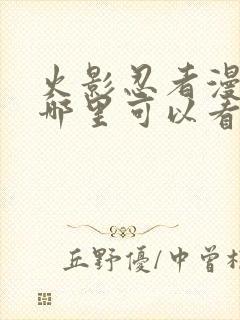 火影忍者漫
哪里可以看
丘野優/中曽根